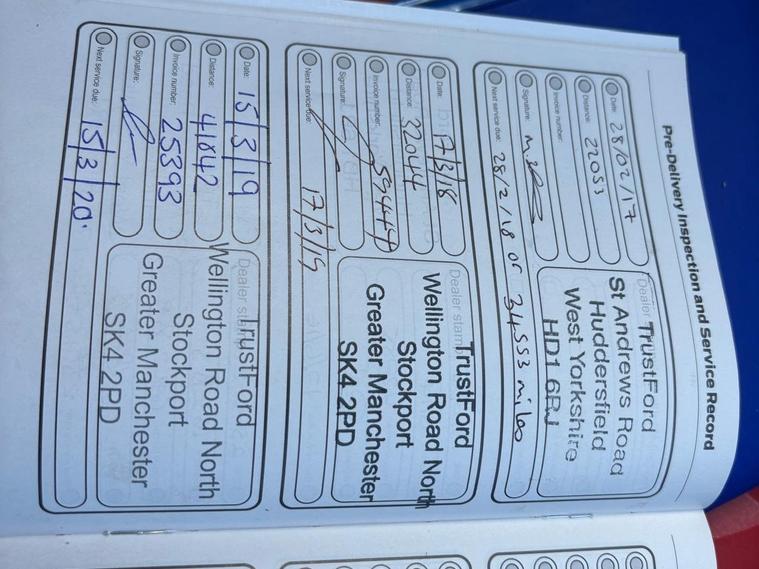 Pre-Delivery Inspection and Service Record
Date: 28/02/17
Distance: 22053
Invoice number:
Signature:
Next service due: 28/2/18 or 34553 miles
Dealer
TrustFord
St Andrews Road
Huddersfield
West Yorkshire
HD1 6RJ
Date: 17/3/18
Distance:
Invoice number:
Signature:
Next service due: 17/3/19
Dealer stamp
TrustFord
Wellington Road North
Stockport
Greater Manchester
SK4 2PD
Date: 15/3/19
Distance: 41842
Invoice number: 25393
Signature:
Next service due: 15/3/20
Dealer stamp
TrustFord
Wellington Road North
Stockport
Greater Manchester
SK4 2PD